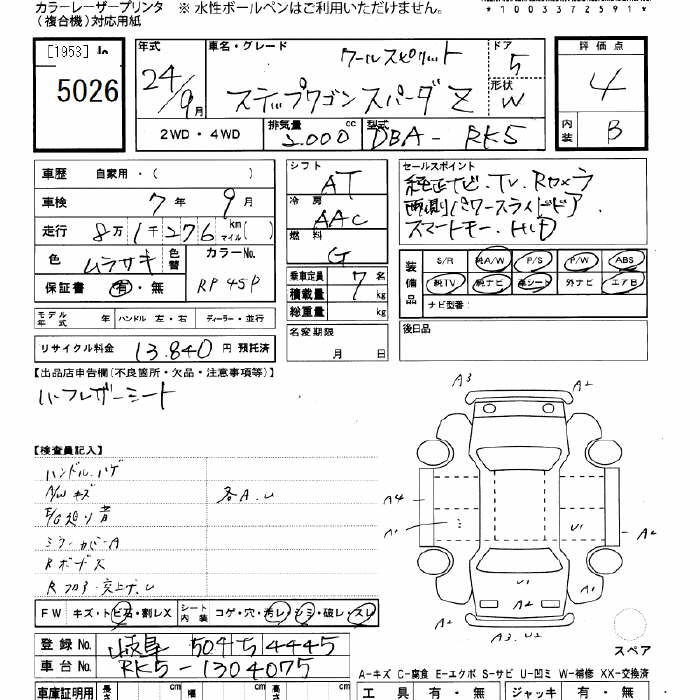 カラーレーザープリンタ ※ 水性ボールペンはご利用いただけません。
(複合機)対応用紙
*1003372591*
[1953]
5026
年式 24/9月
車名・グレード クールスピリット
ステップワゴン スパーダ Z
ドア 5
形状 W
評価点 4
内装 B
2WD・4WD 排気量 2.000 cc 型式 DBA-RK5
車歴 自家用・( )
車検 7年 9月
走行 8万 1千 276 km マイル( )
色 ムラサキ 色替 カラーNo. RP45P
保証書 有・無
モデル年式 年 ハンドル 左・右 ディーラー・並行
リサイクル料金 13.840 円 預託済
シフト AT
冷房 AAC
燃料 G
乗車定員 7 名
積載量 kg
総重量 kg
名変期限 月 日
セールスポイント
純正ナビ.TV.Rカメラ
両側パワースライドドア
スマートキー.HID
装備品 S/R 純A/W P/S P/W ABS
純TV 純ナビ 革シート 外ナビ エアB
ナビ型番:
後日品
【出品店申告欄(不良箇所・欠品・注意事項等)】
ハーフレザーシート
【検査員記入】
ハンドル.ハゲ
A/W キズ 各A.U
ミラーカバーA
FW キズ・トビ石・割レX シート内装 コゲ・穴・汚レ・シミ・破レ・スレ
登録No. 岐阜 504 ち 4445
車台No. RK5-1304075
車庫証明用 長さ cm 幅 cm cm
A3
A2
A4
A1
U1
A2
A2
U1
A2
A3.U2
スペア
A-キズ C-腐食 E-エクボ S-サビ U-凹ミ W-補修 XX-交換済
工具 有・無 ジャッキ 有・無